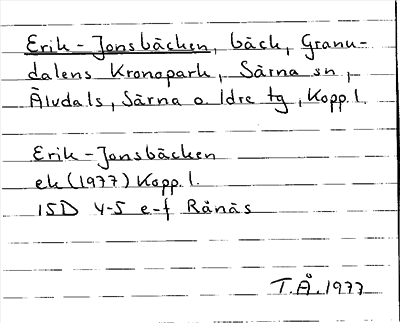 Erik-Jonsbäcken, bäck, Granu-
dalens Kronopark, Särna sn,
Älvdals, Särna o. Idre tg, Kopp. l.
Erik-Jonsbäcken
ek (1977) Kopp. l.
15D 4-5 e-f Rånäs
T.Å. 1977